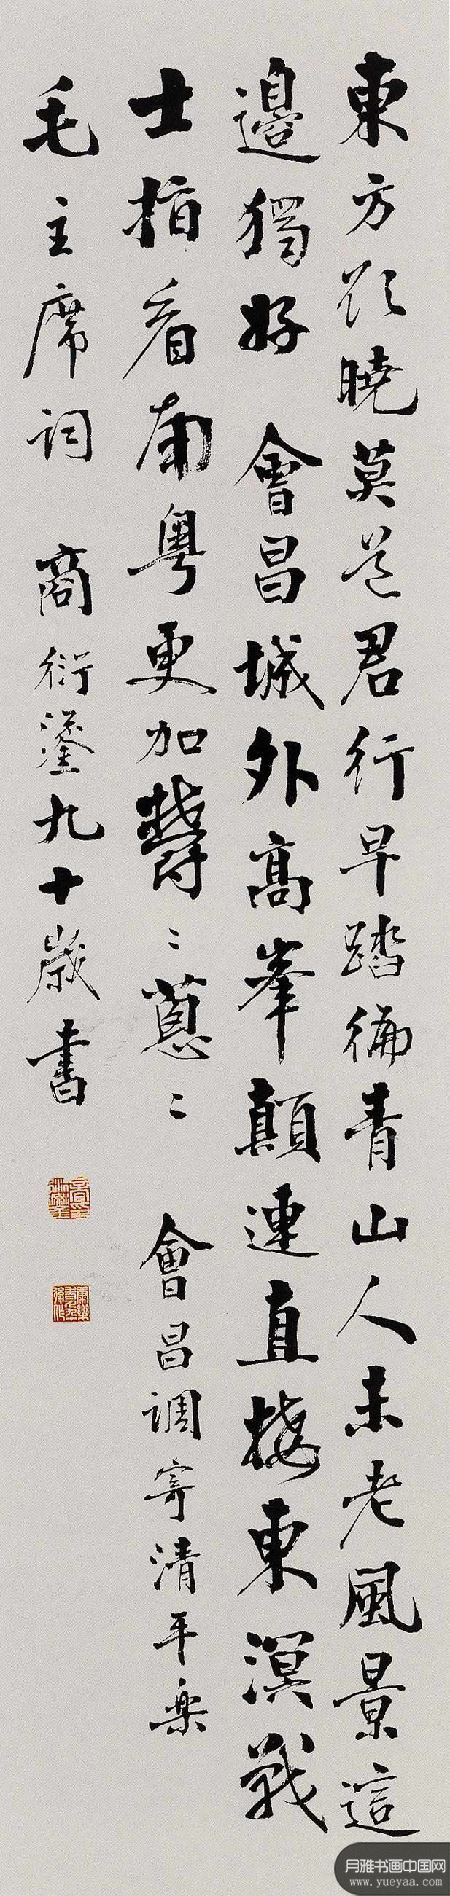 東方欲曉莫道君行早踏徧青山人未老風景這
邊獨好 會昌城外高峯顛連直接東溟戰
士指看南粤更加鬱〻蔥〻 會昌調寄清平樂
毛主席詞 商衍鎏九十歲書
月雅书画中国网
www.yueyaa.com